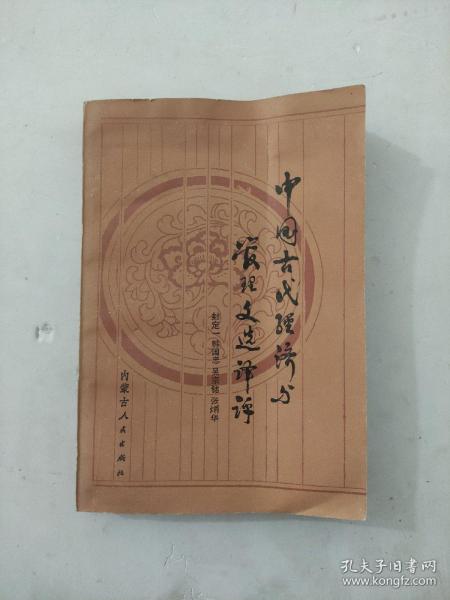 中国古代经济与
管理文选译评
封定一 韩国忠 吴宗铭 张炳华
内蒙古人民出版社
孔夫子旧书网
www.kongfz.com